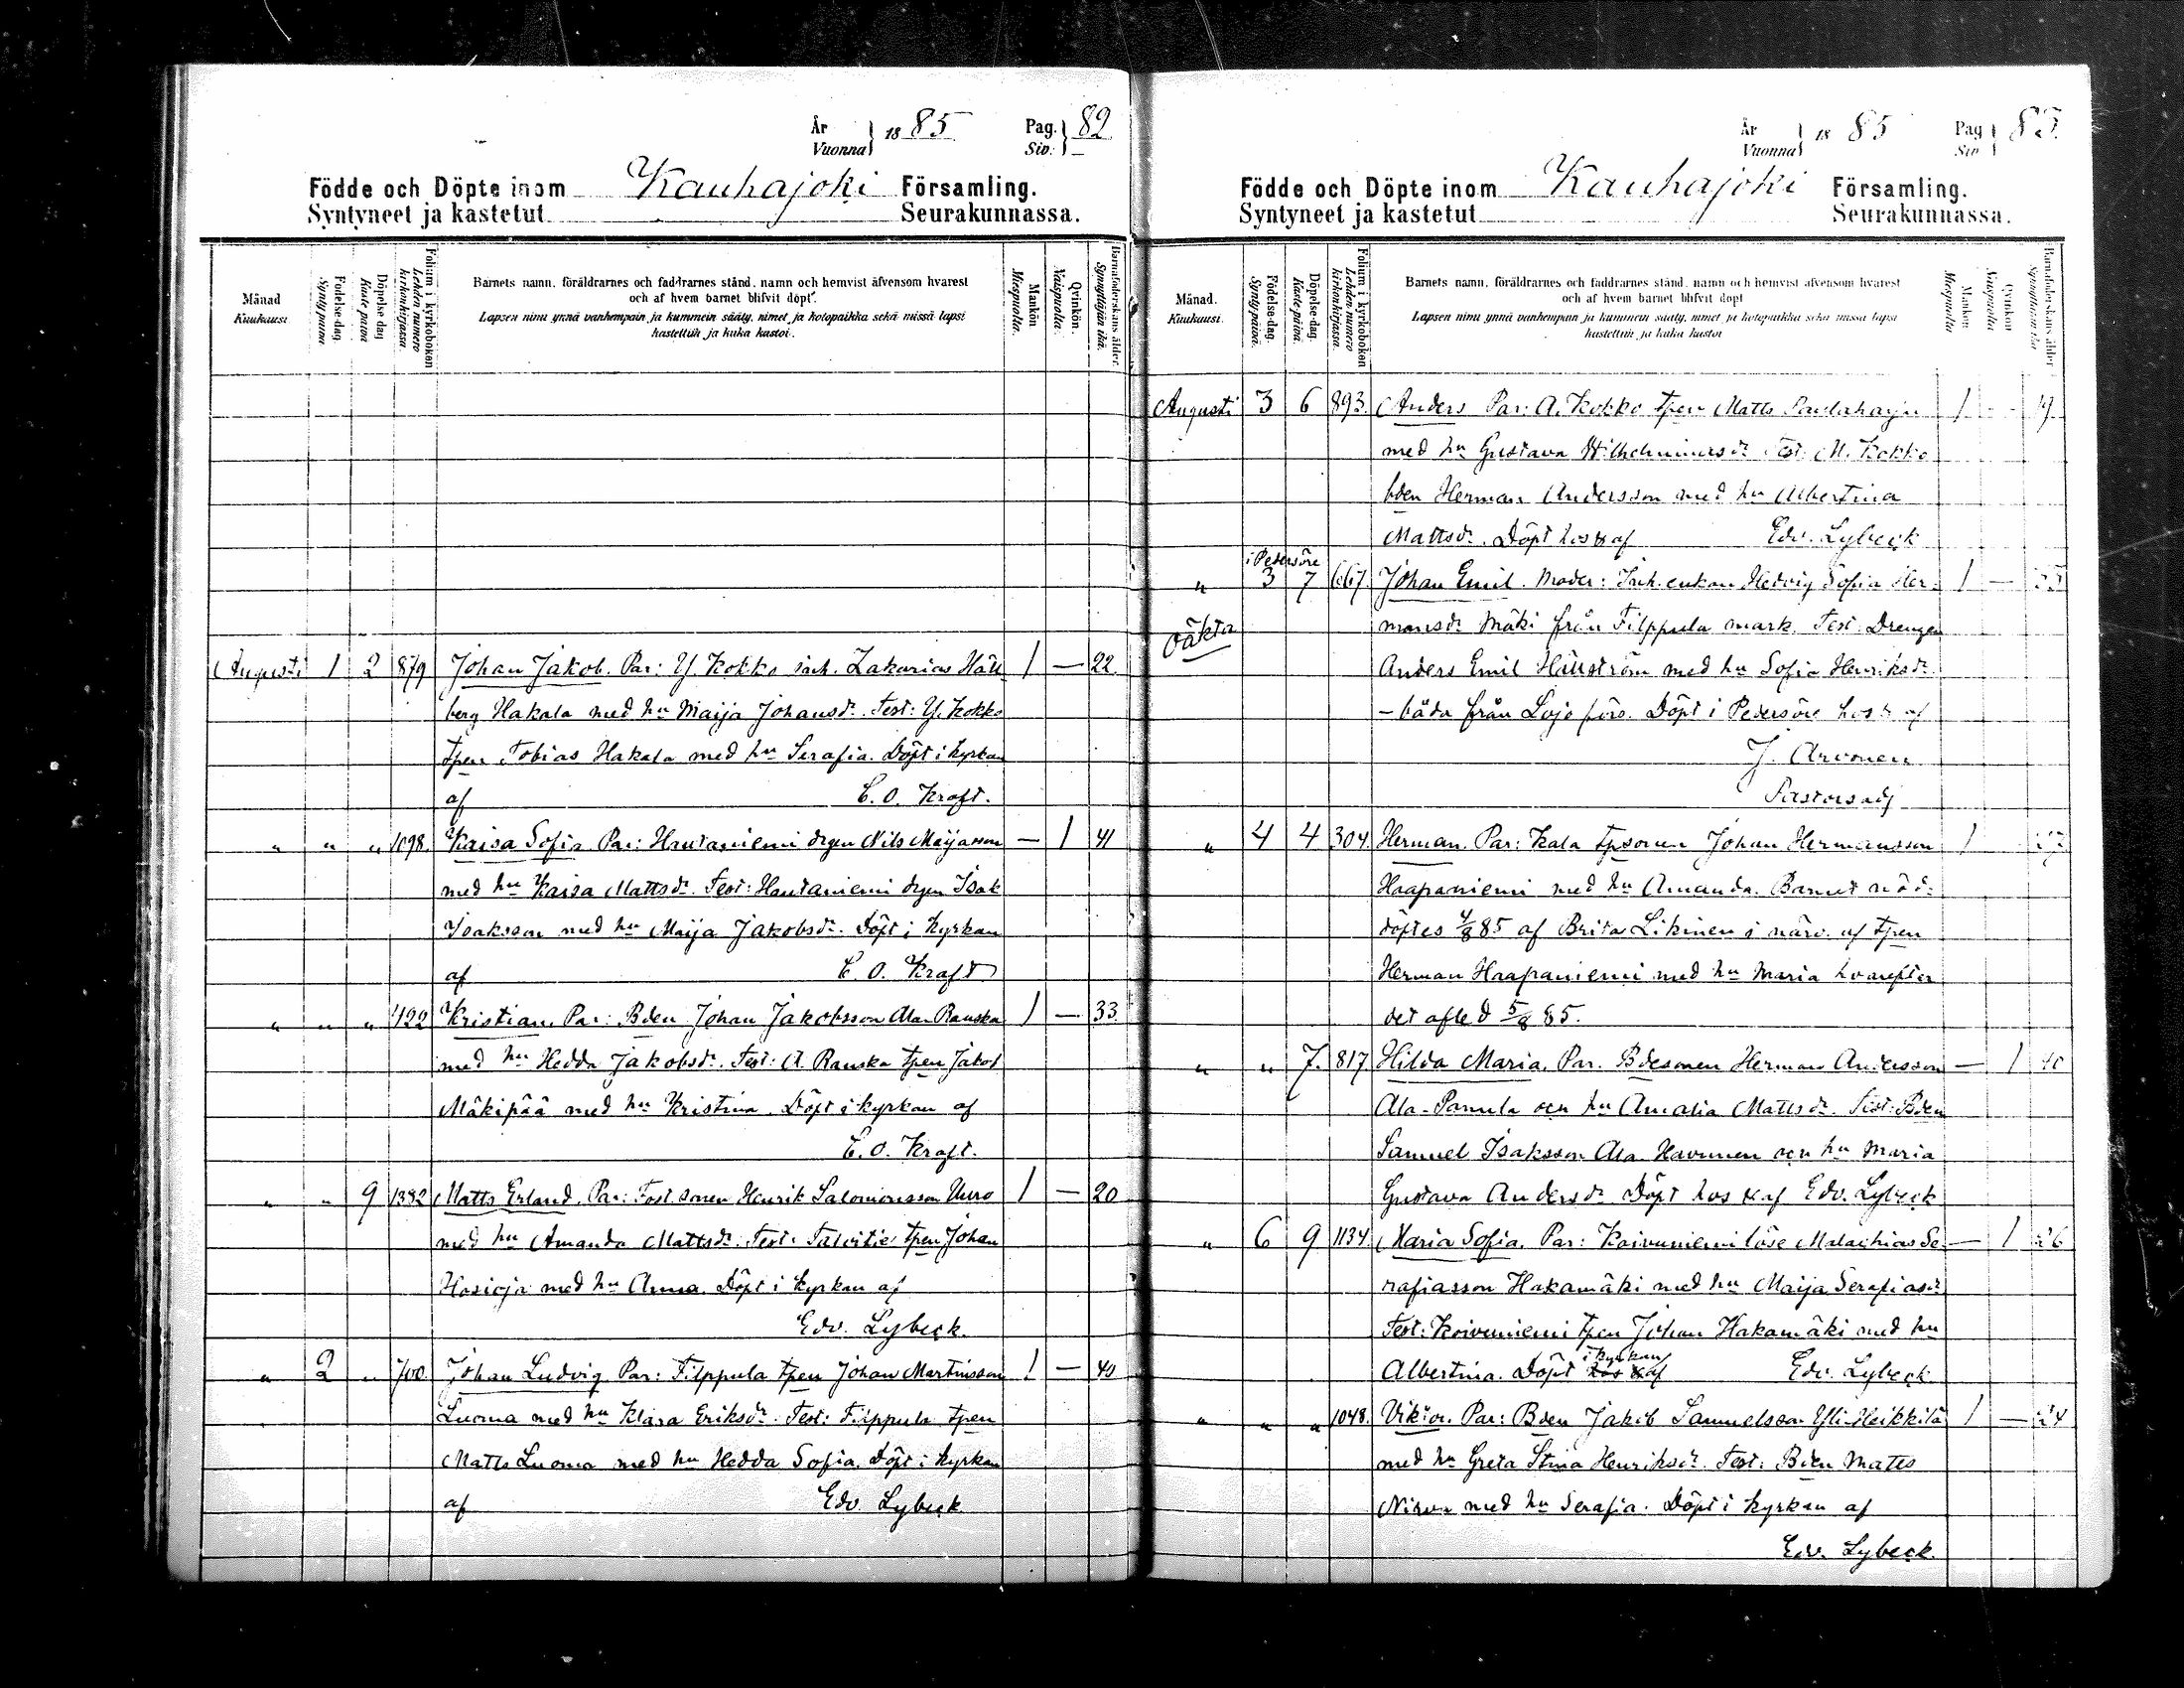 År
Vuonna } 1885 Pag.
Siv. } 82
Födde och Döpte inom Kauhajoki Församling.
Syntyneet ja kastetut Seurakunnassa.
Månad
Kuukausi
Födelse-dag
Syntypäivä
Döpelse dag
Kaste-päivä
Folium i kyrkoboken
Lehden numero kirkonkirjassa
Barnets namn, föräldrarnes och faddrarnes stånd, namn och hemvist äfvensom hvarest
och af hvem barnet blifvit döpt.
Lapsen nimi ynnä vanhempain ja kummein sääty, nimet ja kotopaikka sekä missä lapsi
kastettiin ja kuka kastoi.
Mankön
Miespuolia.
Qvinkön.
Naispuolia.
Barnaföderskans ålder.
Synnyttäjän ikä.
Augusti 1 2 879 Johan Jakob. Par: Y. Kokko inh. Zakarias Häll 1 — 22
berg Hakala med hu Maija Johansdr. Test: Y. Kokko
tpen Tobias Hakala med hu Serafia. Döpt i kyrkan
af C. O. Kraft.
" " " 1098. Kaisa Sofia. Par: Hautaniemi drgen Nils Maijasson — 1 41
med hu Kaisa Mattsdr. Test: Hautaniemi drgen Isak
Isaksson med hu Maija Jakobsdr. Döpt i kyrkan
af C. O. Kraft
" " " 422 Kristian. Par: Bden Johan Jakobsson Ala-Rauska 1 — 33.
med hu Hedda Jakobsdr. Test: A. Rauska tpen Jakob
Mäkipää med hu Kristina. Döpt i kyrkan af
C. O. Kraft.
" " 9 1382 Matts Erland. Par: Fost.sonen Henrik Salomonsson Uuro 1 — 20
med hu Amanda Mattsdr. Test: Talvitie tpen Johan
Hosioja med hu Anna. Döpt i kyrkan af
Edv. Lybeck.
" 2 " 700. Johan Ludvig. Par: Filppula tpen Johan Martinsson 1 — 40
Luoma med hu Klara Eriksdr. Test: Filppula tpen
Matts Luoma med hu Hedda Sofia. Döpt i kyrkan
af Edv. Lybeck
År
Vuonna } 1885 Pag
Siv } 83.
Födde och Döpte inom Kauhajoki Församling.
Syntyneet ja kastetut Seurakunnassa.
Månad.
Kuukausi.
Födelse-dag.
Syntypäivä.
Döpelse-dag.
Kaste-päivä.
Folium i kyrkoboken
Lehden numero kirkonkirjassa.
Barnets namn, föräldrarnes och faddrarnes stånd, namn och hemvist äfvensom hvarest
och af hvem barnet blifvit döpt
Lapsen nimi ynnä vanhempain ja kummein sääty, nimet ja kotopaikka sekä missä lapsi
kastettiin ja kuka kastoi
Mankön
Miespuolia
Qvinkön
Naispuolia
Barnaföderskans ålder
Synnyttäjän ikä
Augusti 3 6 893. Anders Par: A. Kokko tpen Matts Paulaharju 1 —
med hu Gustava Wilhelminasdr. Test: M. Kokko
bden Herman Andersson med hu Albertina
Mattsdr. Döpt hos & af Edv. Lybeck
i Pedersöre
" 3 7 667. Johan Emil. Moder: Inh.enkan Hedvig Sofia Her- 1 —
oäkta
mansdr Mäki från Filppula mark. Test: Drengen
Anders Emil Hällström med hu Sofia Henriksdr
- båda från Lojo förs. Döpt i Pedersöre hos & af
J. Arvonen
Pastorsadj
" 4 4 304. Herman. Par: Kala tpsonen Johan Hermansson 1
Haapaniemi med hu Amanda. Barnet nöd-
döptes 4/8 85 af Brita Likinen i närv. af tpen
Herman Haapaniemi med hu Maria hvarefter
det afled 5/8 85.
" " 7. 817 Hilda Maria. Par. Bdesonen Herman Andersson — 1 40
Ala-Panula och hu Amalia Mattsdr. Test: Bden
Samuel Isaksson Ala-Havunen och hu Maria
Gustava Andersdr Döpt hos & af Edv. Lybeck
" 6 9 1134. Maria Sofia. Par: Koivuniemi löse Malachias Se- — 1 26
rafiasson Hakamäki med hu Maija Serafiasdr
Test: Koivuniemi tpen Johan Hakamäki med hu
i kyrkan
Albertina. Döpt hos & af Edv. Lybeck
" " " 1048. Viktor. Par: Bden Jakob Samuelsson Yli-Heikkilä 1 — 24
med hu Greta Stina Henriksdr. Test: Bden Matts
Nirva med hu Serafia. Döpt i kyrkan af
Edv. Lybeck.